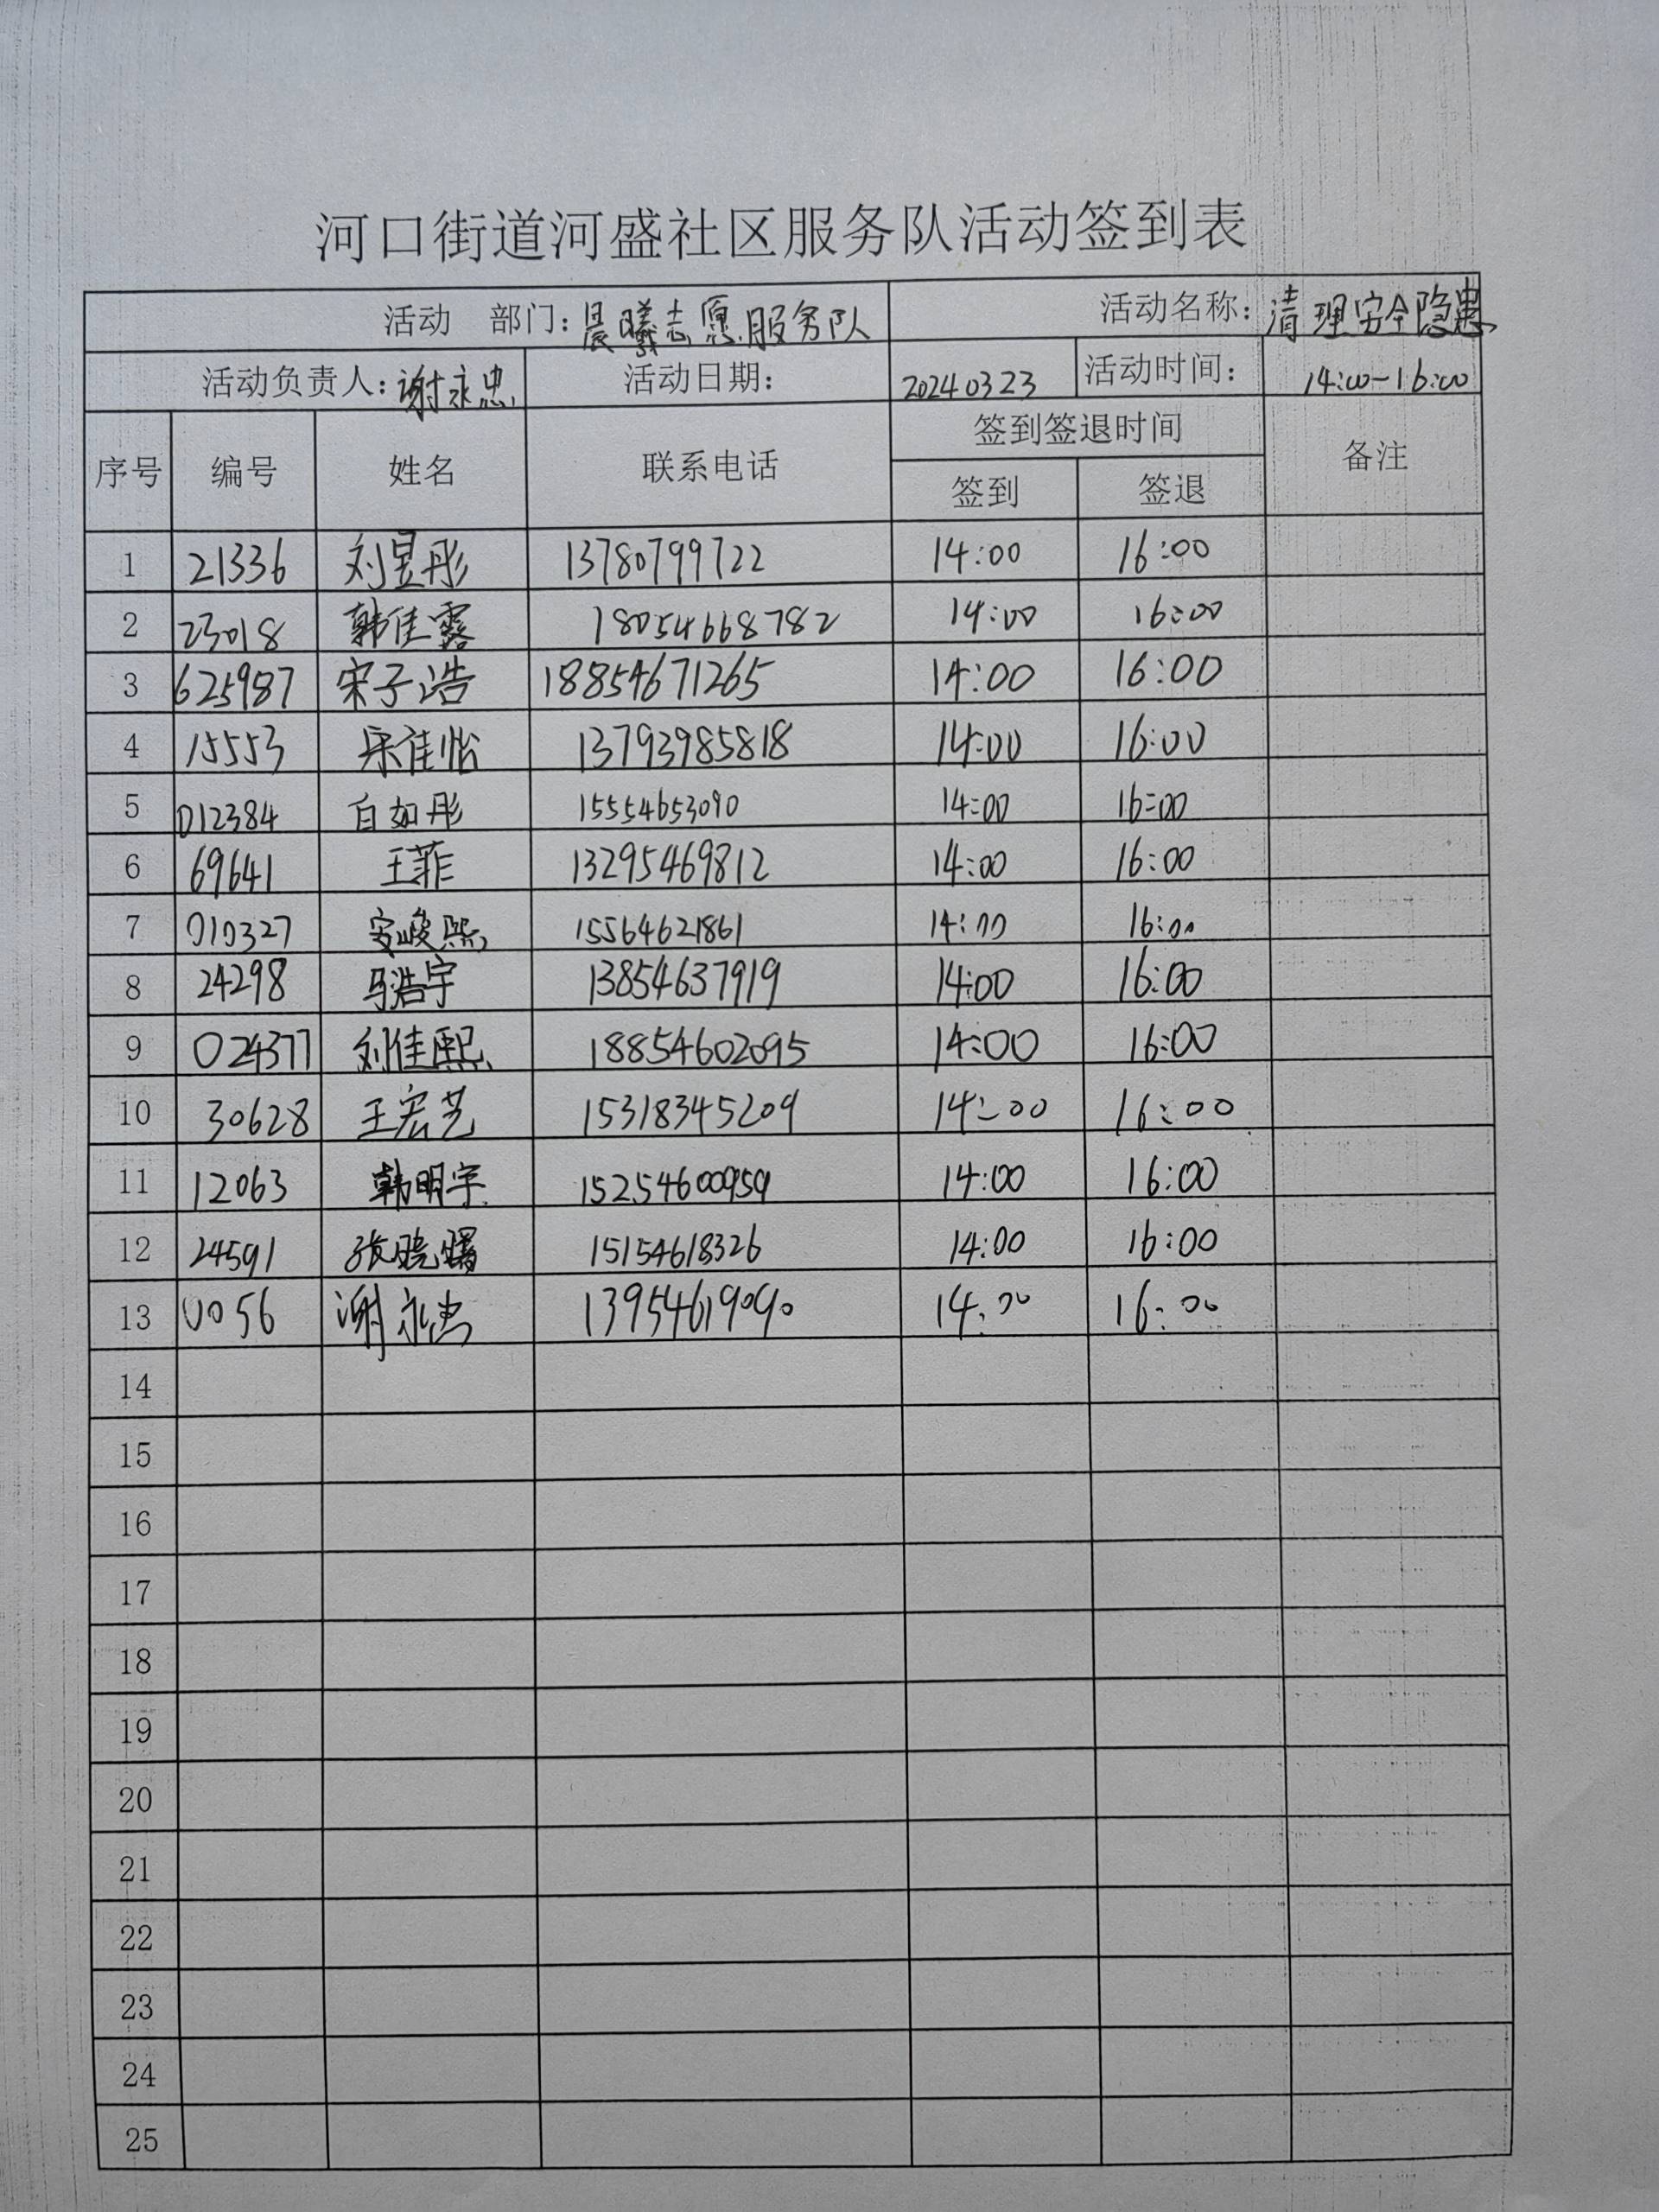 河口街道河盛社区服务队活动签到表
活动 部门：晨曦志愿服务队 活动名称：清理安全隐患
活动负责人：谢永忠 活动日期： 20240323 活动时间： 14:00-16:00
序号 编号 姓名 联系电话 签到签退时间 备注
签到 签退
1 21336 刘昱彤 13780799722 14:00 16:00
2 23018 韩佳露 18054668782 14:00 16:00
3 625987 宋子浩 18854671265 14:00 16:00
4 15553 宋佳怡 13793985818 14:00 16:00
5 012384 白如彤 15554653090 14:00 16:00
6 69641 王菲 13295469812 14:00 16:00
7 010327 安峻熙 15564621861 14:00 16:00
8 24298 马浩宇 13854637919 14:00 16:00
9 024377 刘佳熙 18854602095 14:00 16:00
10 30628 王宏艺 15318345209 14:00 16:00
11 12063 韩明宇 15254600959 14:00 16:00
12 24591 张晓曙 15154618326 14:00 16:00
13 0056 谢永忠 13954619090 14:00 16:00
14
15
16
17
18
19
20
21
22
23
24
25